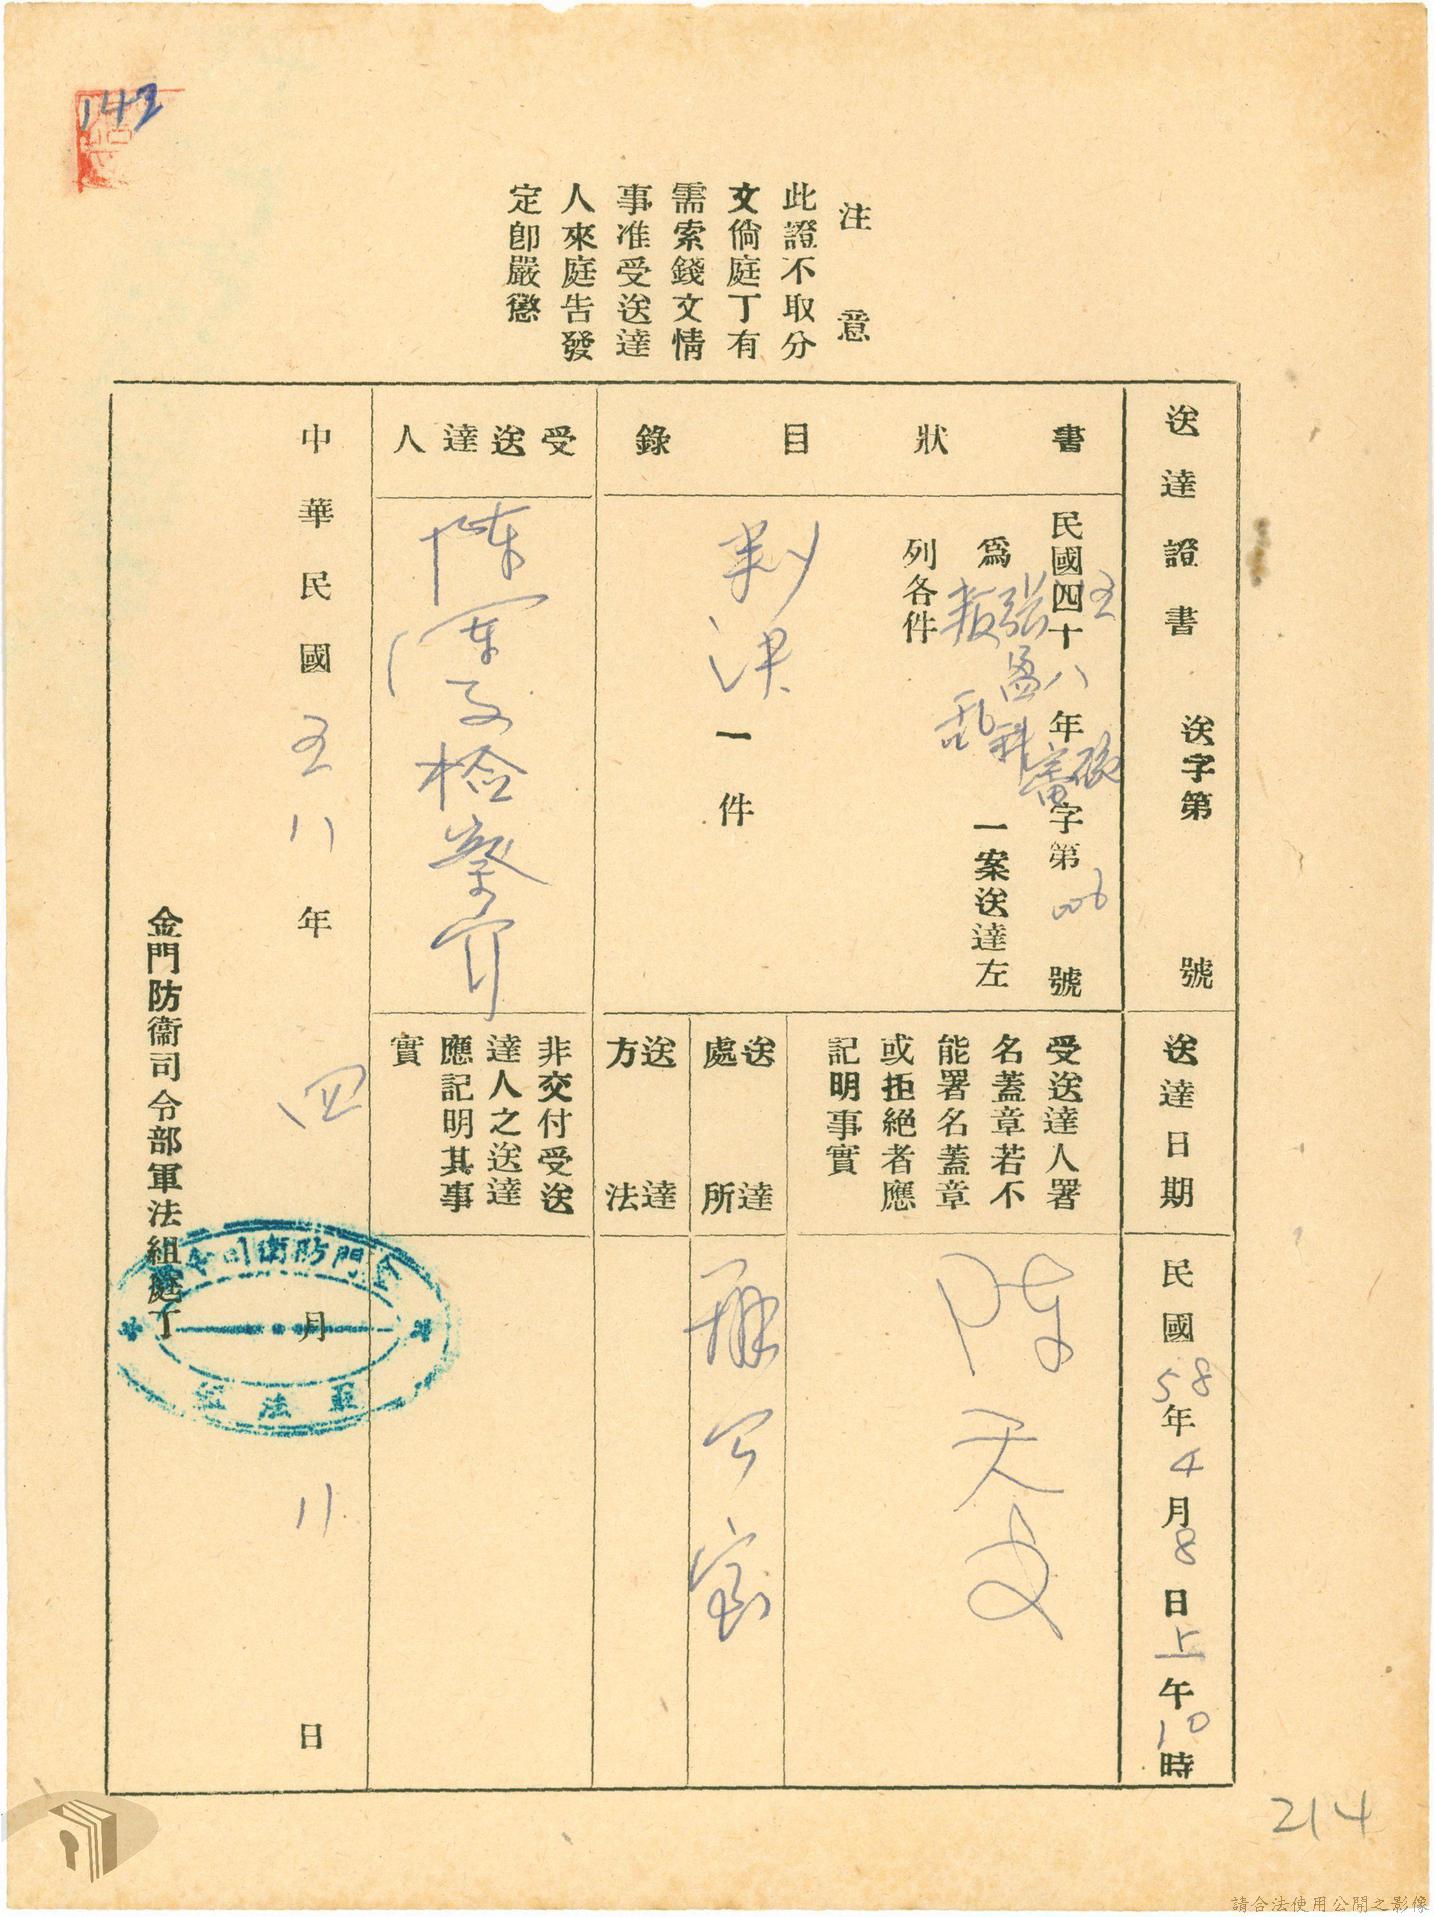 142
注意
此證不取分
文倘庭丁有
需索錢文情
事准受送達
人來庭告發
定卽嚴懲
送達證書 送字第 號
送達日期
民國58年4月8日上午10時
書狀目錄
民國四十五八年 字第006號
爲張盈科叛亂一案送達左
列各件
判決一件
受送達人署
名蓋章若不
能署名蓋章
或拒絕者應
記明事實
陈天文
送達處所
辦公室
送達方法
受送達人
陳軍 檢察官
非交付受送
達人之送達
應記明其事
實
中華民國五八年四月八日
金門防衞司令部軍法組庭丁
金門防衛司令部
軍法組
214
請合法使用公開之影像